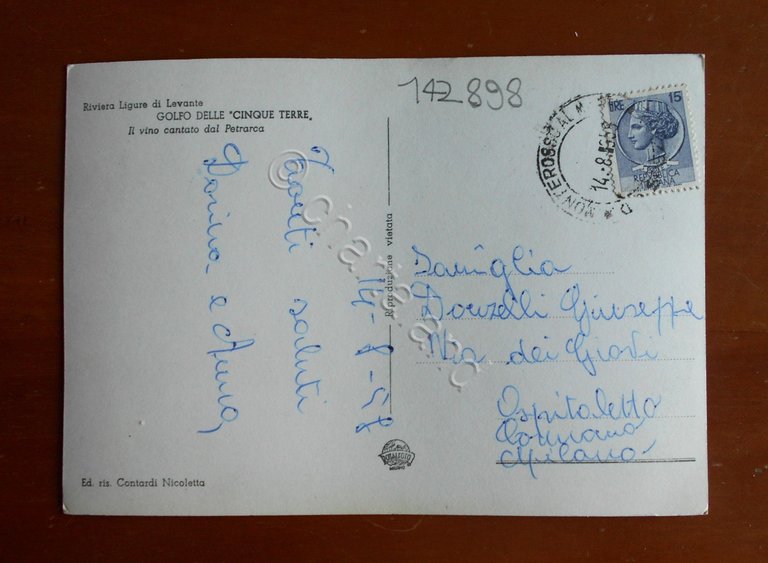 Riviera Ligure di Levante
GOLFO DELLE "CINQUE TERRE"
Il vino cantato dal Petrarca
142898
LIRE 15
REPUBBLICA
ITALIANA
MONTEROSSO AL M
14.8.1958
14-8-58
Tanti saluti
Dorina e Anna
Riproduzione vietata
Famiglia
Donzelli Giuseppe
Via dei Giovi
Ospitaletto
Cormano
Milano
ROTALFOTO
MILANO
Ed. ris. Contardi Nicoletta
© cartolandia